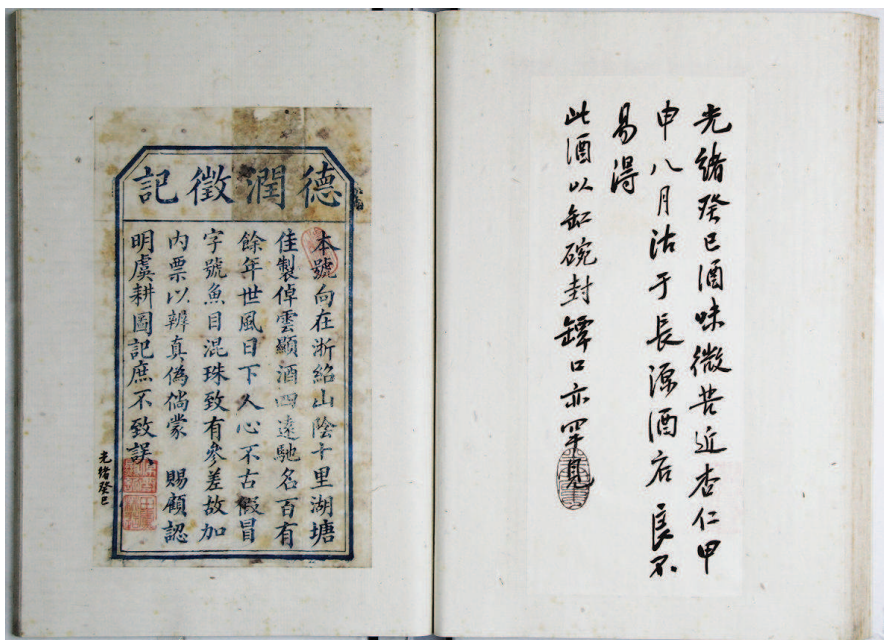 光緒癸巳酒味微苦近杏仁甲
申八月沽于長源酒店良不
易得
此酒以缸碗封罈口亦罕見
德潤徵記
本號向在浙紹山陰十里湖塘
佳製倬雲顯酒四遠馳名百有
餘年世風日下人心不古假冒
字號魚目混珠致有參差故加
內票以辨真偽倘蒙 賜顧認
明虞耕圖記庶不致誤
光緒癸巳